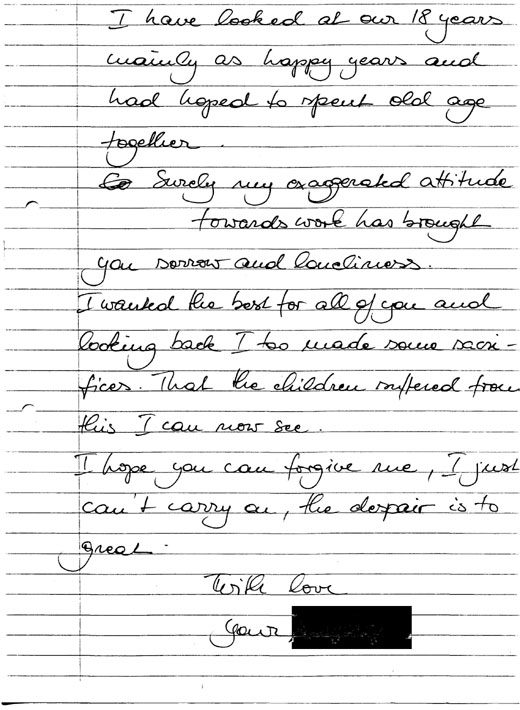 I have looked at our 18 years
mainly as happy years and
had hoped to spent old age
together.
Surely my exaggerated attitude
towards work has brought
you sorrow and loneliness.
I wanted the best for all of you and
looking back I too made some sacri-
fices. That the children suffered from
this I can now see.
I hope you can forgive me, I just
can't carry on, the despair is to
great.
With love
your